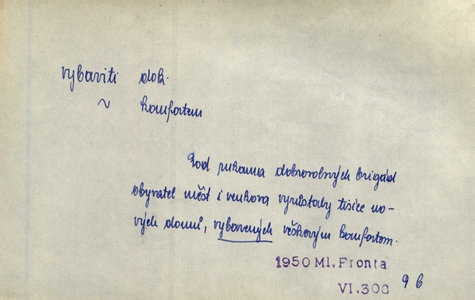 vybaviti dok.
~ komfortem
Pod rukama dobrovolných brigád
obyvatel měst i venkova vyrůstaly tisíce no-
vých domů, vybavených veškerým komfortem.
1950 Ml. Fronta
VI. 308
96